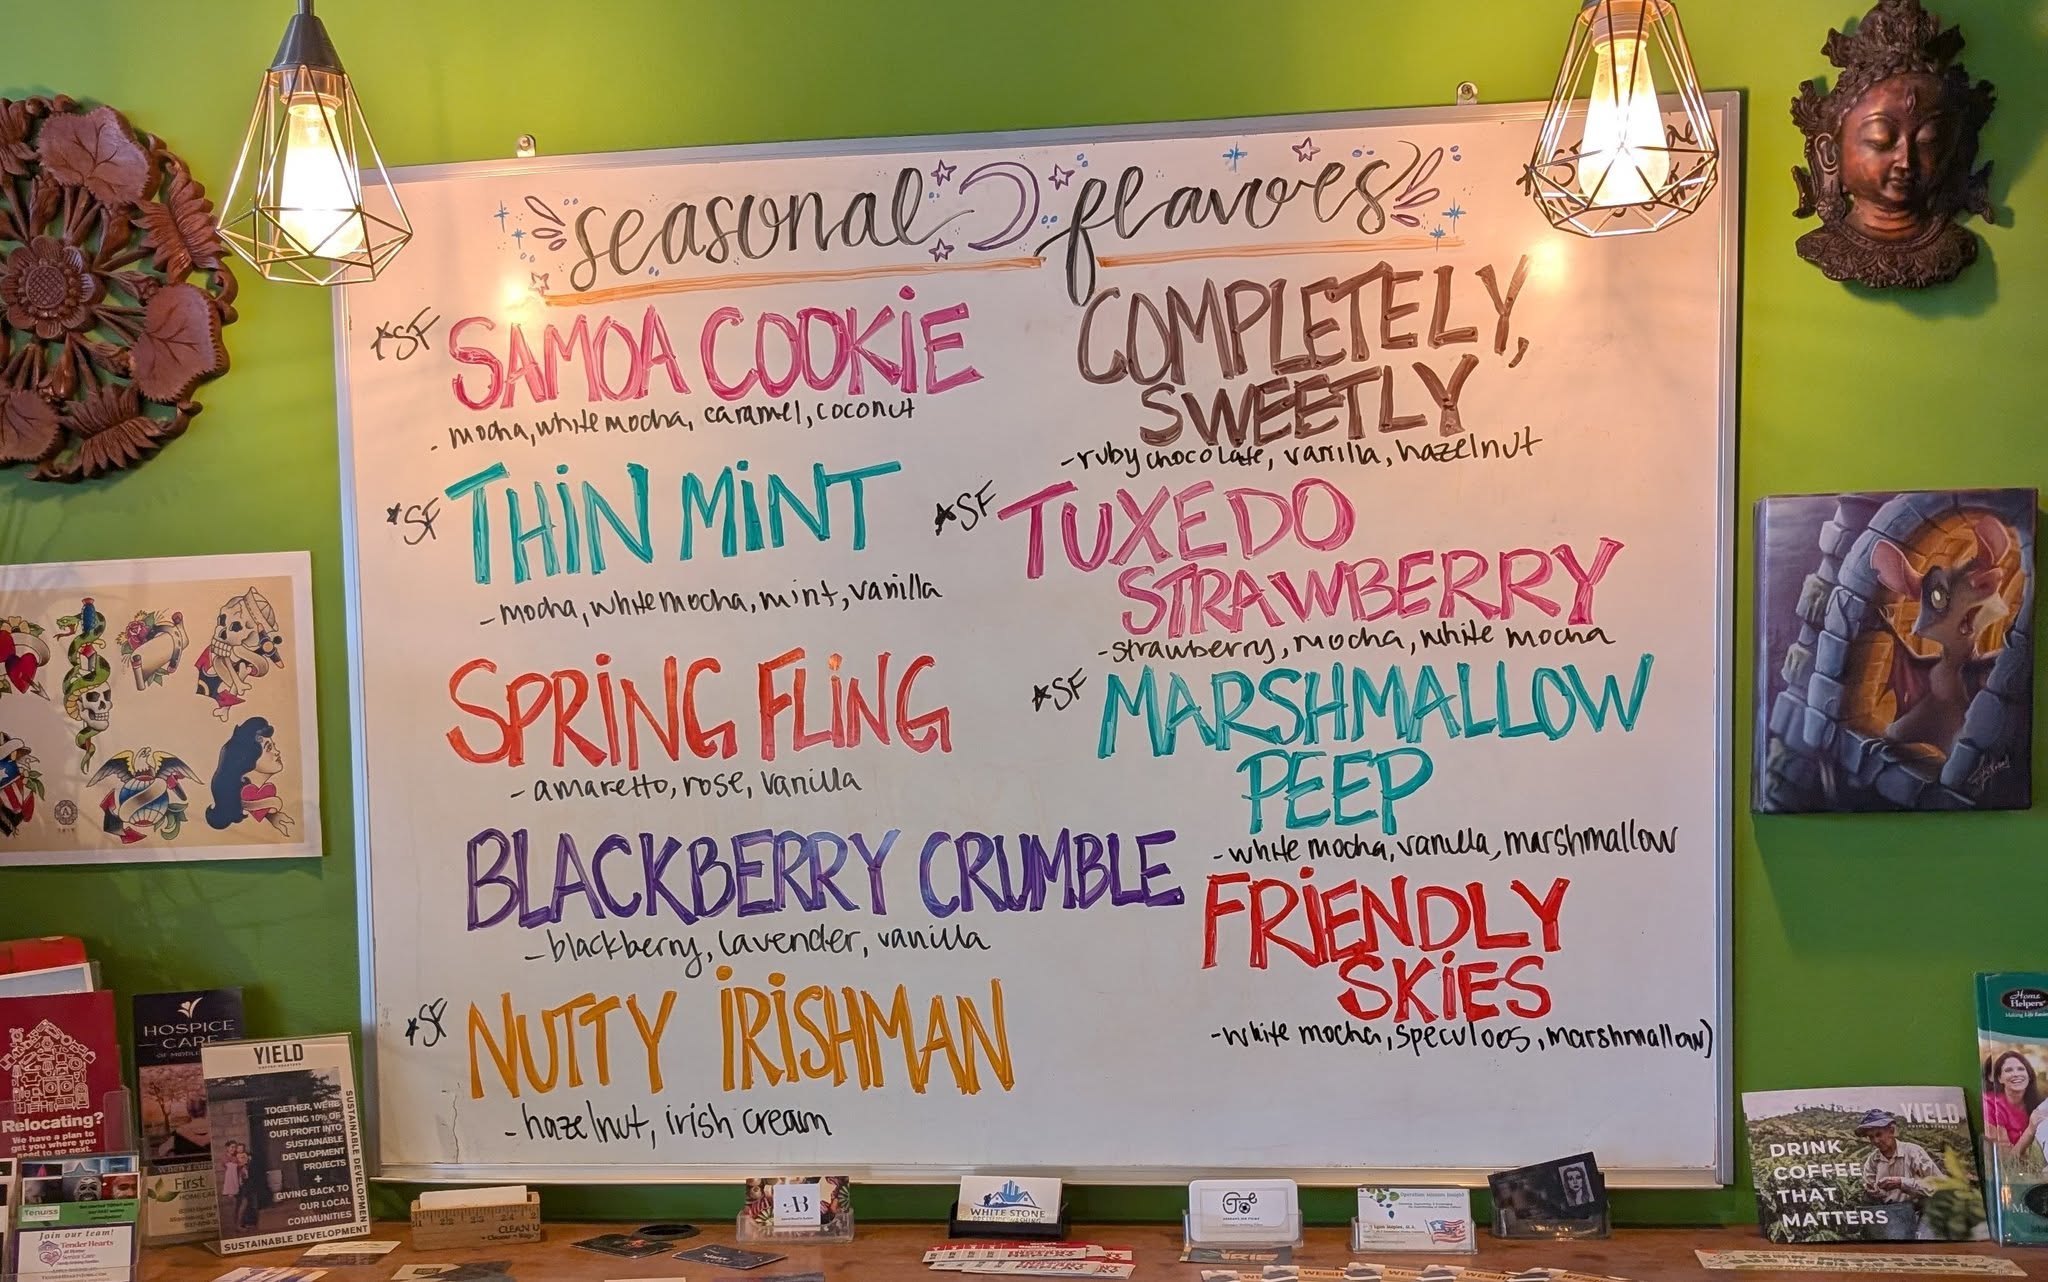 seasonal flavores
*SF SAMOA COOKIE
- mocha, white mocha, caramel, coconut
*SF THIN MINT
- mocha, white mocha, mint, vanilla
SPRING FLING
- amaretto, rose, vanilla
BLACKBERRY CRUMBLE
- blackberry, lavender, vanilla
*SF NUTTY IRISHMAN
- hazelnut, irish cream
COMPLETELY,
SWEETLY
- ruby chocolate, vanilla, hazelnut
*SF TUXEDO
STRAWBERRY
- strawberry, mocha, white mocha
*SF MARSHMALLOW
PEEP
- white mocha, vanilla, marshmallow
FRIENDLY
SKIES
- white mocha, speculoos, marshmallow)
Relocating?
We have a plan to
get you where you
need to go next.
HOSPICE
CARE
First
Join our team!
Tender Hearts
YIELD
TOGETHER, WE'RE
INVESTING 10% OF
OUR PROFIT INTO
SUSTAINABLE
DEVELOPMENT
PROJECTS
+
GIVING BACK TO
OUR LOCAL
COMMUNITIES
SUSTAINABLE DEVELOPMENT
SUSTAINABLE DEVELOPMENT
CLEAN
AB
WHITE STONE
YIELD
DRINK
COFFEE
THAT
MATTERS
Home
Helpers